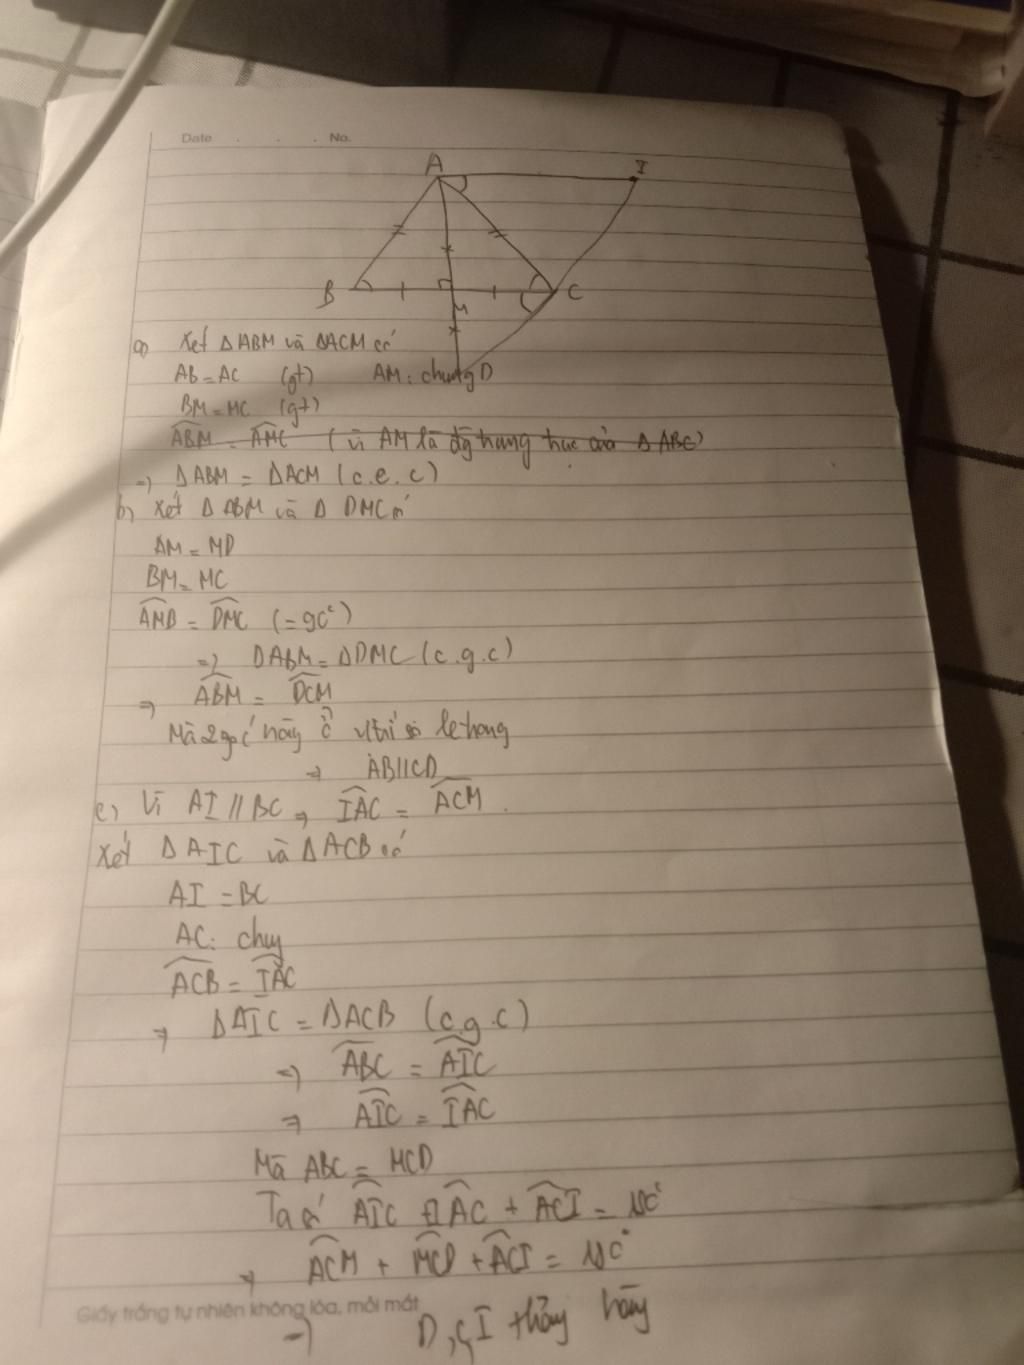 Date . . . No.
A I
B M C
D
a) Xét ΔABM và ΔACM có
AB = AC (gt) AM: chung
BM = MC (gt)
ABM = AMC (vì AM là đg trung trực của ΔABC)
=> ΔABM = ΔACM (c.c.c)
b) Xét ΔABM và ΔDMC có
AM = MD
BM = MC
AMB = DMC (= 90°)
=> ΔABM = ΔDMC (c.g.c)
=> ABM = DCM
Mà 2 góc này ở vị trí so le trong
=> AB // CD
c) Vì AI // BC => IAC = ACM
Xét ΔAIC và ΔACB có
AI = BC
AC: chung
ACB = IAC
=> ΔAIC = ΔACB (c.g.c)
=> ABC = AIC
=> AIC = IAC
Mà ABC = MCD
Ta có AIC + IAC + ACI = 180°
=> ACM + MCD + ACI = 180°
Giấy trắng tự nhiên không lóa, mỏi mắt
=> D, C, I thẳng hàng